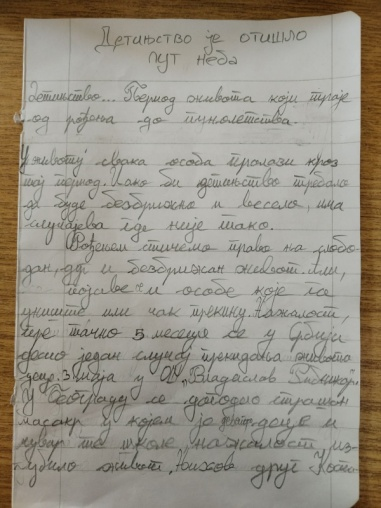 Детињство је отишло
пут неба
Детињство... Период живота који траје
од рођења до пунолетства.
У животу свака особа пролази кроз
тај период. Иако би детињство требало
да буде безбрижно и весело, има
случајева где није тако.
Рођењем стичемо право на слобо
дан, и безбрижан живот. Али,
појаве и особе које га
униште или чак прекину. Нажалост,
пре тачно 5 месеца се у Србији
десио један случај прекидања живота
деце. 3. маја у ОШ „Владислав Рибникар"
у Београду се догодио страшан
масакр у којем је деце и
чувар те школе нажалост из-
губило живот. Њихов друг